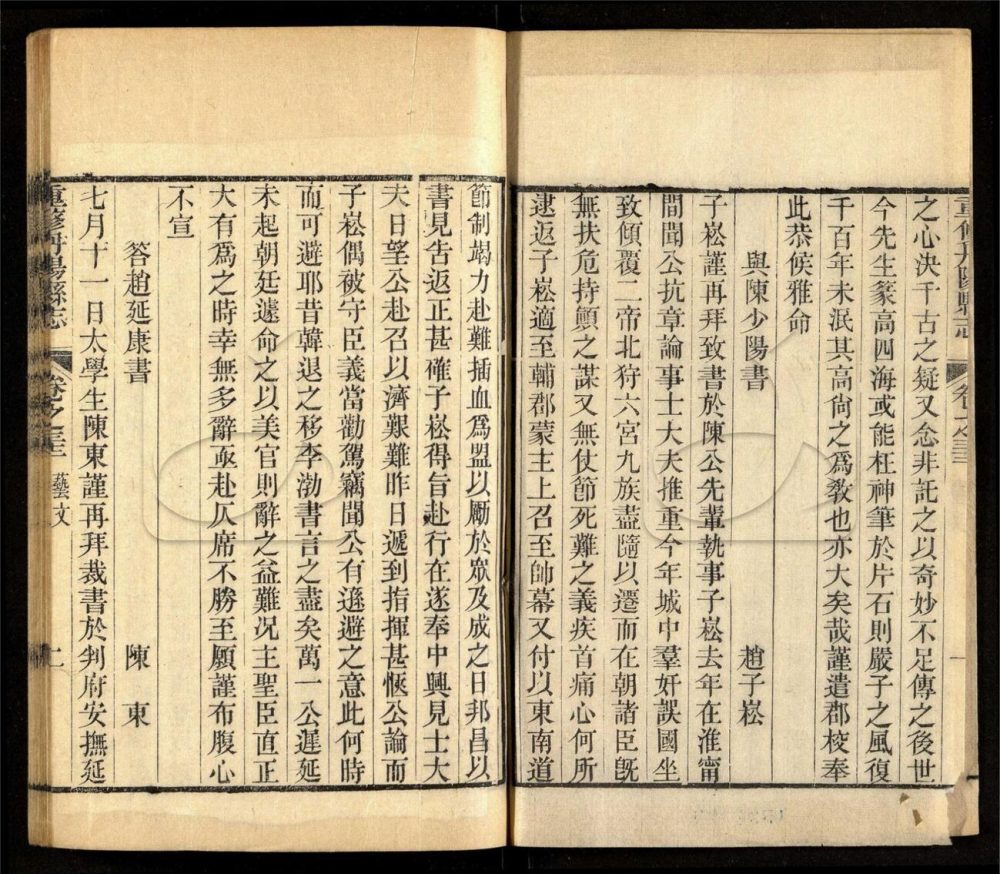 重修丹陽縣志
之心決千古之疑又念非託之以奇妙不足傳之後世
今先生篆高四海或能枉神筆於片石則嚴子之風復
千百年未泯其高尚之為教也亦大矣哉謹遣郡校奉
此恭候雅命
與陳少陽書 趙子崧
子崧謹再拜致書於陳公先輩執事子崧去年在淮甯
間聞公抗章論事士大夫推重今年城中羣奸誤國坐
致傾覆二帝北狩六宮九族盡隨以遷而在朝諸臣旣
無扶危持顛之謀又無仗節死難之義疾首痛心何所
逮返子崧適至輔郡蒙主上召至帥幕又付以東南道
節制竭力赴難插血為盟以勵於眾及成之日邦昌以
書見告返正甚確子崧得旨赴行在遂奉中興見士大
夫日望公赴召以濟艱難昨日遞到指揮甚愜公論而
子崧偶被守臣義當勸駕竊聞公有遜避之意此何時
而可避耶昔韓退之移李渤書言之盡矣萬一公遲延
未起朝廷遽命之以美官則辭之益難况主聖臣直正
大有為之時幸無多辭亟赴仄席不勝至願謹布腹心
不宣
答趙延康書 陳東
七月十一日太學生陳東謹再拜裁書於判府安撫延
重修丹陽縣志 卷之三三 藝文 二